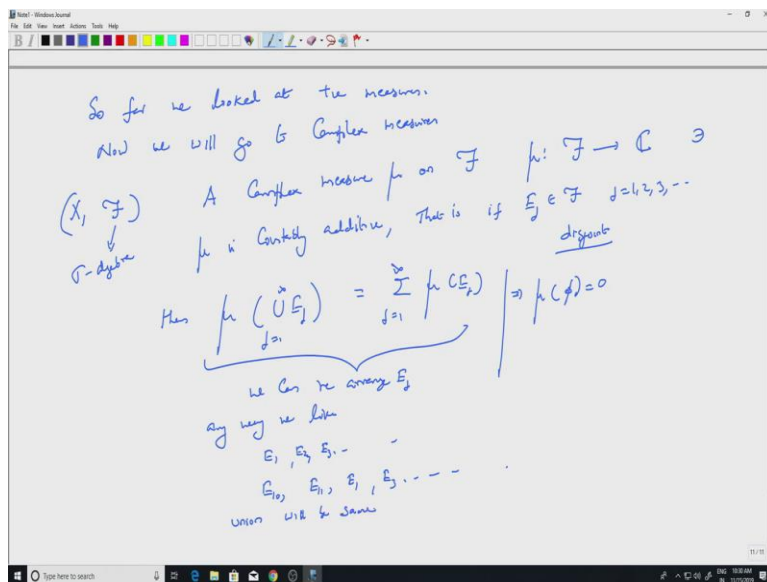 Note1 - Windows Journal
File Edit View Insert Actions Tools Help
So far we looked at +ve measures.
Now we will go to Complex measures
(X, ℱ) A Complex measure μ on ℱ μ: ℱ → ℂ ∋
σ-algebra
μ is Countably additive, That is if E_j ∈ ℱ j=1,2,3,...
disjoint
then μ(∪_{j=1}^∞ E_j) = Σ_{j=1}^∞ μ(E_j) | ⇒ μ(ϕ)=0
we can re arrange E_j
any way we like
E_1, E_2, E_3 ..
E_10, E_11, E_1, E_3 ....
union will be same
11/11
Type here to search
ENG 10:30 AM
IN 11/25/2019